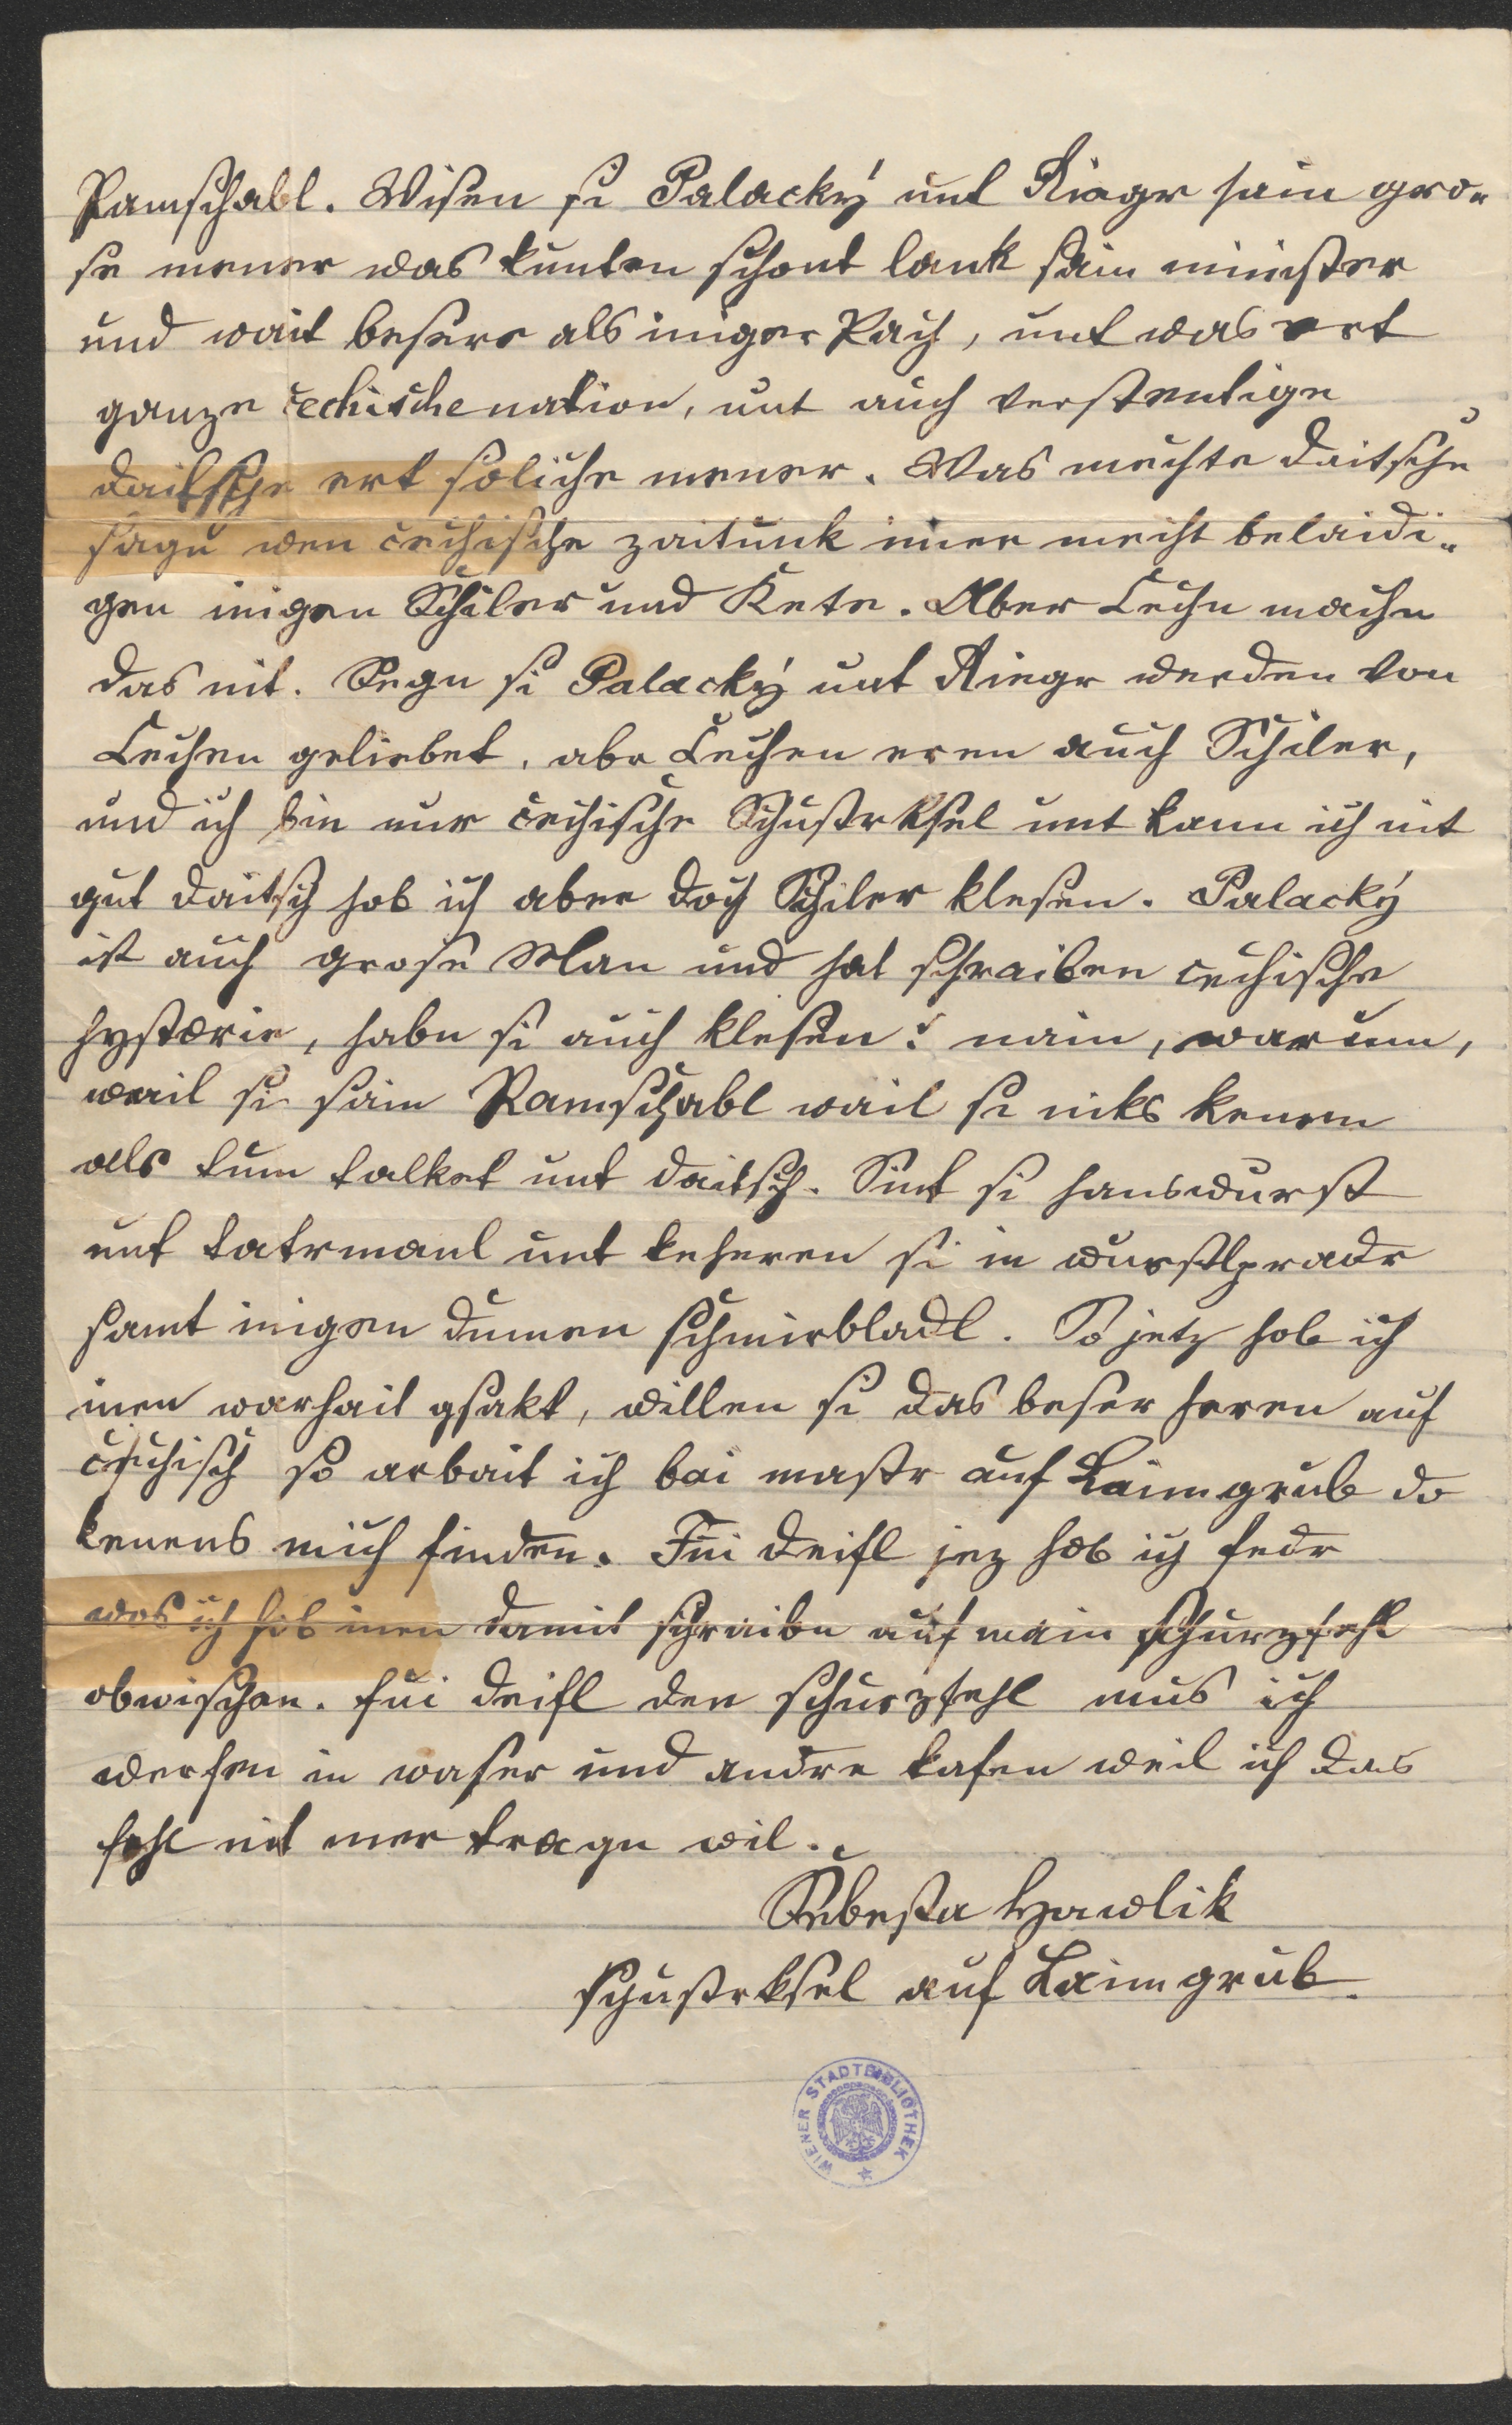 Ramschabl. Wisen si Palacký unt Riegr sain gro-
se mener was kunten schont lank sain minister
und wait besere als iniger Pach, unt was ert
ganze čechische nation, unt auch verstentige
daitsche ert soliche mener. Was mechte daitsche
sagn wen čechische zaitunk imer mecht belaidi-
gen inigen Schiler und Kete. Aber Čechn machn
das nit. Segn si Palacký unt Riegr werden von
Čechen geliebet, abr Čechen eren auch Schiler,
und ich bin nur čechische Schustrksel unt kann ich nit
gut daitsch hob ich aber doch Schiler klesen. Palacký
ist auch grose Man und hat schraiben čechische
hystorie, habn si auch klesen? nain, warum,
wail si sain Ramschabl wail si niks kenen
als tum talket unt daitsch. Sint si hanswurst
unt tatrmanl unt keheren si in wurstlpradr
samt inigen dumen schmirbladl. So jetz hob ich
inen warhait gsakt, willen si das beser heren auf
čechisch so arbait ich bai mastr auf Laimgrub do
kenens mich finden. Fui deifl jez hob ich fedr
was ich hob inen damit schraibn auf main schurzfehl
obwischen. fui deifl den schurzfehl mus ich
werfen in waser und andre kafen weil ich das
fehl nit mer tragn wil.
Šebesta Hawlik
schustrksel auf Laimgrub.
WIENER STADTBIBLIOTHEK